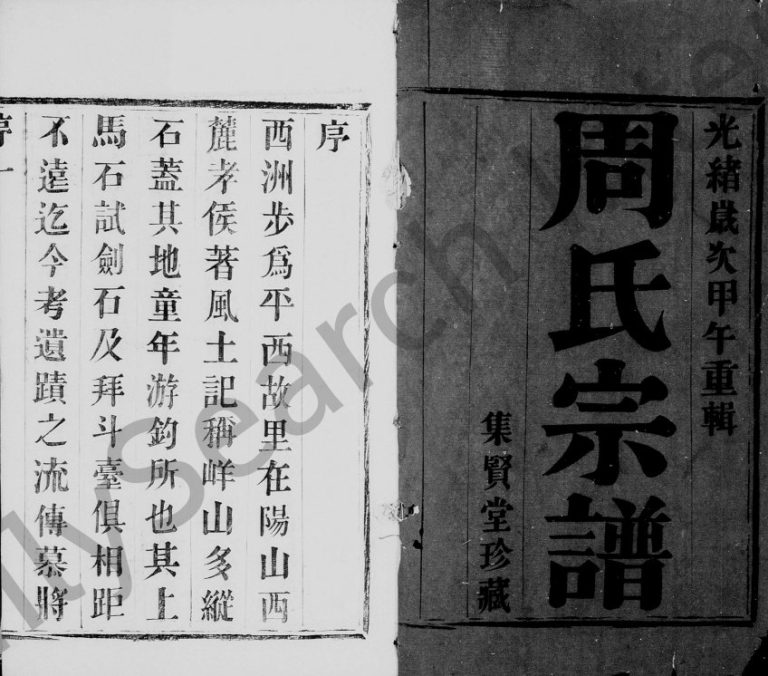 光緒歲次甲午重輯
周氏宗譜
集賢堂珍藏
序
西洲步為平西故里在陽山西
麓孝侯著風土記稱峉山多縱
石蓋其地童年游釣所也其上
馬石試劍石及拜斗臺俱相距
不遠迄今考遺蹟之流傳慕將
序一